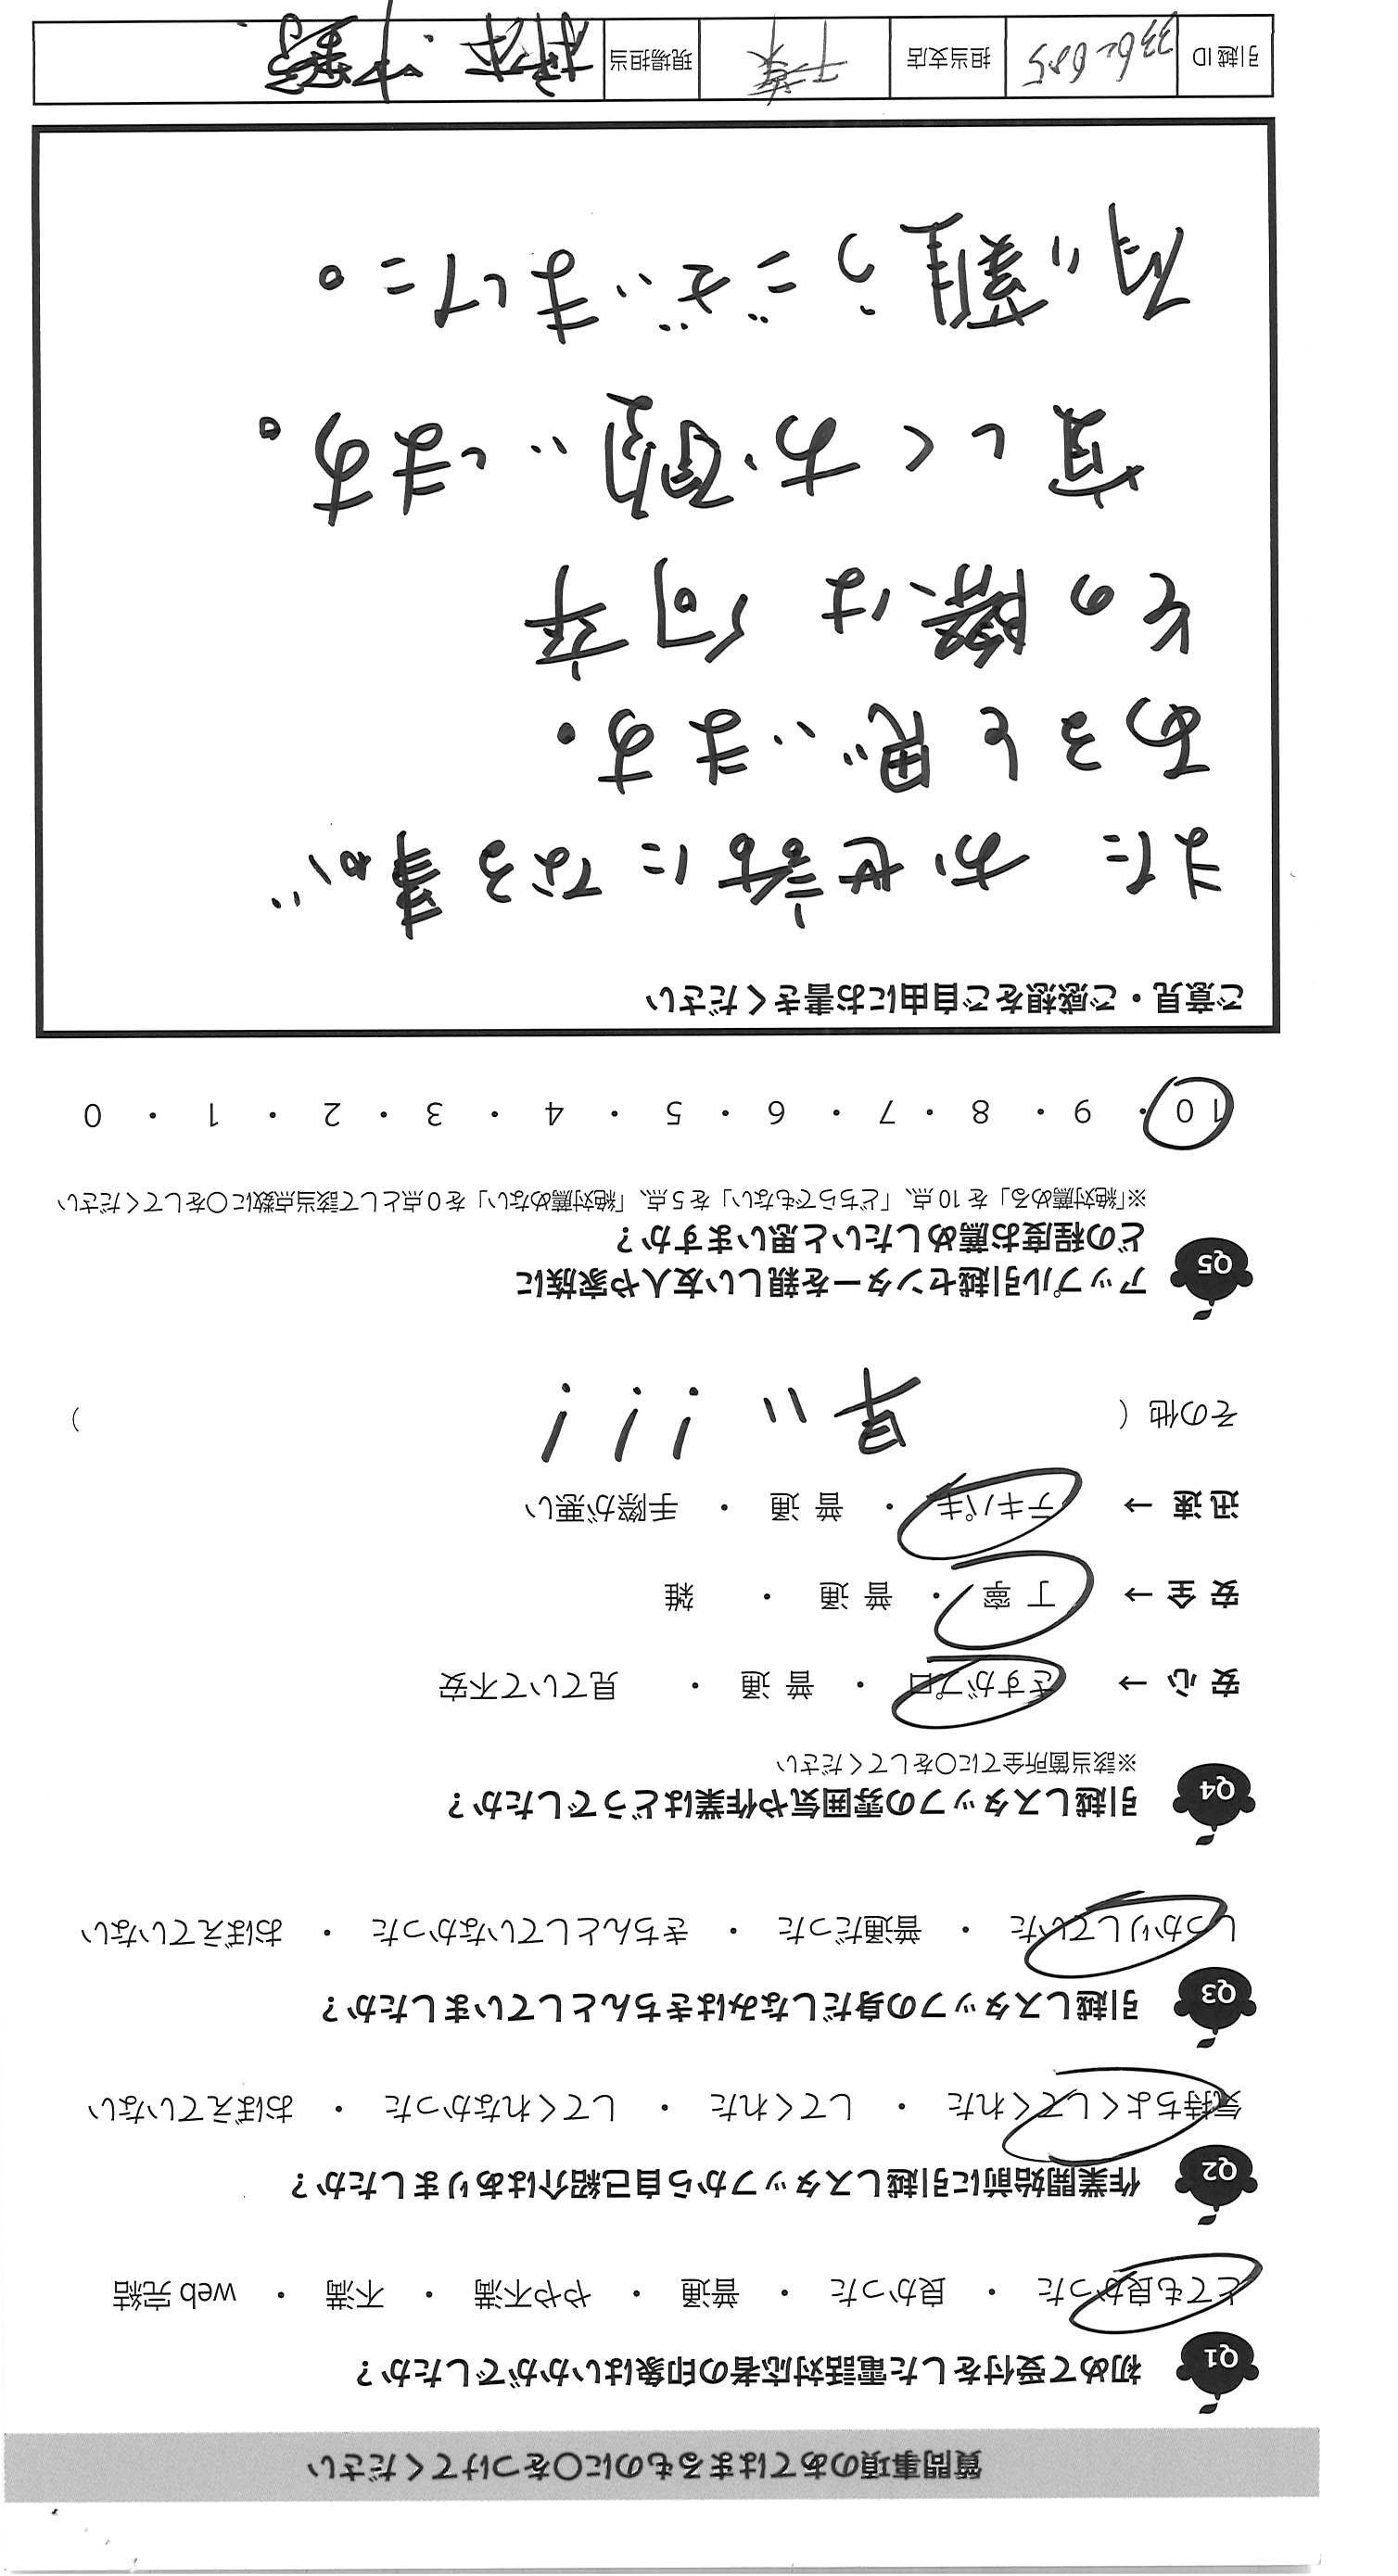 質問事項のあてはまるものに〇をつけてください
Q1 初めて受付をした電話対応者の印象はいかがでしたか？
とても良かった ・ 良かった ・ 普通 ・ やや不満 ・ 不満 ・ web 完結
Q2 作業開始前に引越しスタッフから自己紹介はありましたか？
気持ちよくしてくれた ・ してくれた ・ してくれなかった ・ おぼえていない
Q3 引越しスタッフの身だしなみはきちんとしていましたか？
しっかりしていた ・ 普通だった ・ きちんとしていなかった ・ おぼえていない
Q4 引越しスタッフの雰囲気や作業はどうでしたか？
※該当箇所全てに〇をしてください
安 心 → さすがプロ ・ 普 通 ・ 見ていて不安
安 全 → 丁 寧 ・ 普 通 ・ 雑
迅 速 → テキパキ ・ 普 通 ・ 手際が悪い
その他（ 早い!!! ）
Q5 アップル引越センターを親しい友人や家族に
どの程度お薦めしたいと思いますか？
※「絶対薦める」を 10 点、「どちらでもない」を 5 点、「絶対薦めない」を 0 点として該当点数に〇をしてください
10 ・ 9 ・ 8 ・ 7 ・ 6 ・ 5 ・ 4 ・ 3 ・ 2 ・ 1 ・ 0
ご意見・ご感想をご自由にお書きください
また お世話になる事が
あると思います。
その際は 何卒
宜しくお願いします。
有り難うございました。
引越 ID 3362685 担当支店 千葉 現場担当